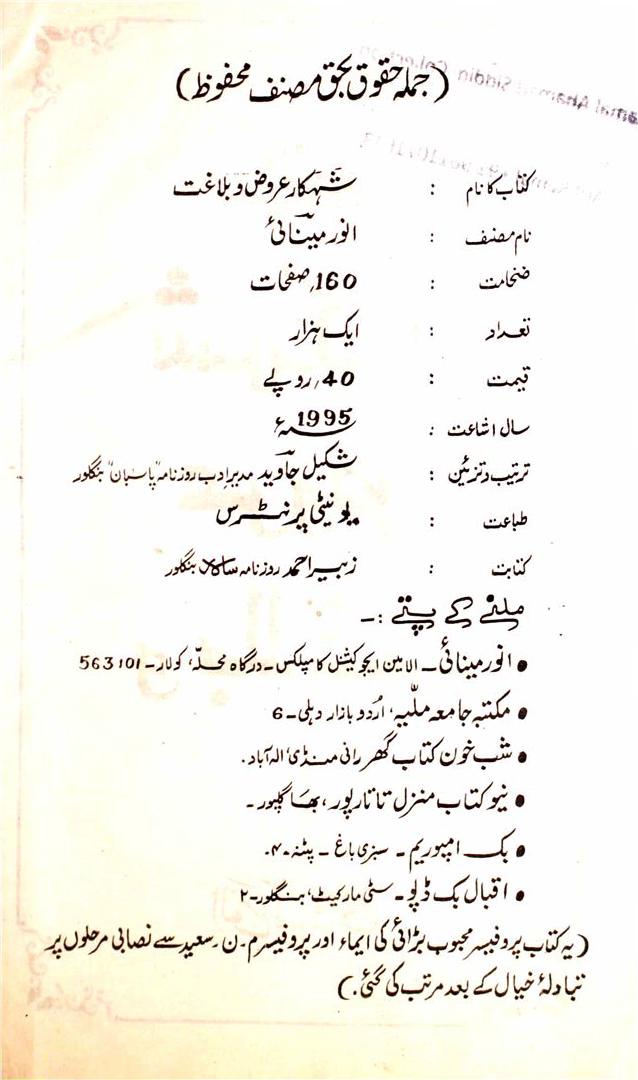 (جملہ حقوق بحق مصنف محفوظ)
کتاب کا نام : شہکار عروض و بلاغت
نام مصنف : انور مینائی
ضخامت : 160؍ صفحات
تعداد : ایک ہزار
قیمت : 40؍ روپے
سال اشاعت : 1995ء
ترتیب و تزئین : شکیل جاوید مدیر ادب روزنامہ "پاسبان" بنگلور
طباعت : یونیٹی پرنٹرس
کتابت : زبیر احمد روزنامہ سالار بنگلور
ملنے کے پتے :-
• انور مینائی ـ الامین ایجوکیشنل کامپلکس ـ درگاہ محلہ، کولار ـ 563101
• مکتبہ جامعہ ملّیہ، اُردو بازار دہلی ـ 6
• شب خون کتاب گھر رانی منڈی، الہ آباد.
• نیو کتاب منزل تاتارپور، بھاگلپور ـ
• بک امپوریم ـ سبزی باغ ـ پٹنہ ـ ۴.
• اقبال بک ڈپو ـ سٹی مارکیٹ، بنگلور ـ ۲
(یہ کتاب پروفیسر محبوب بڑائی کی ایماء اور پروفیسر م.ن.سعید سے نصابی مرحلوں پر
تبادلۂ خیال کے بعد مرتب کی گئی.)